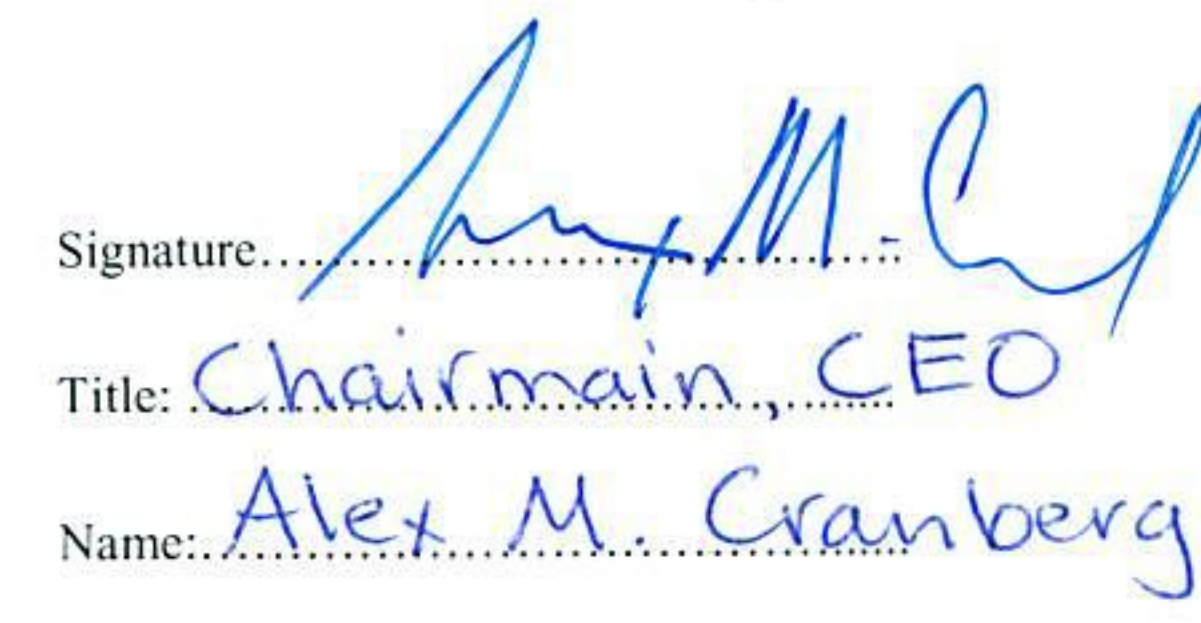 Signature..............................
Title: Chairmain, CEO
Name: Alex M. Cranberg